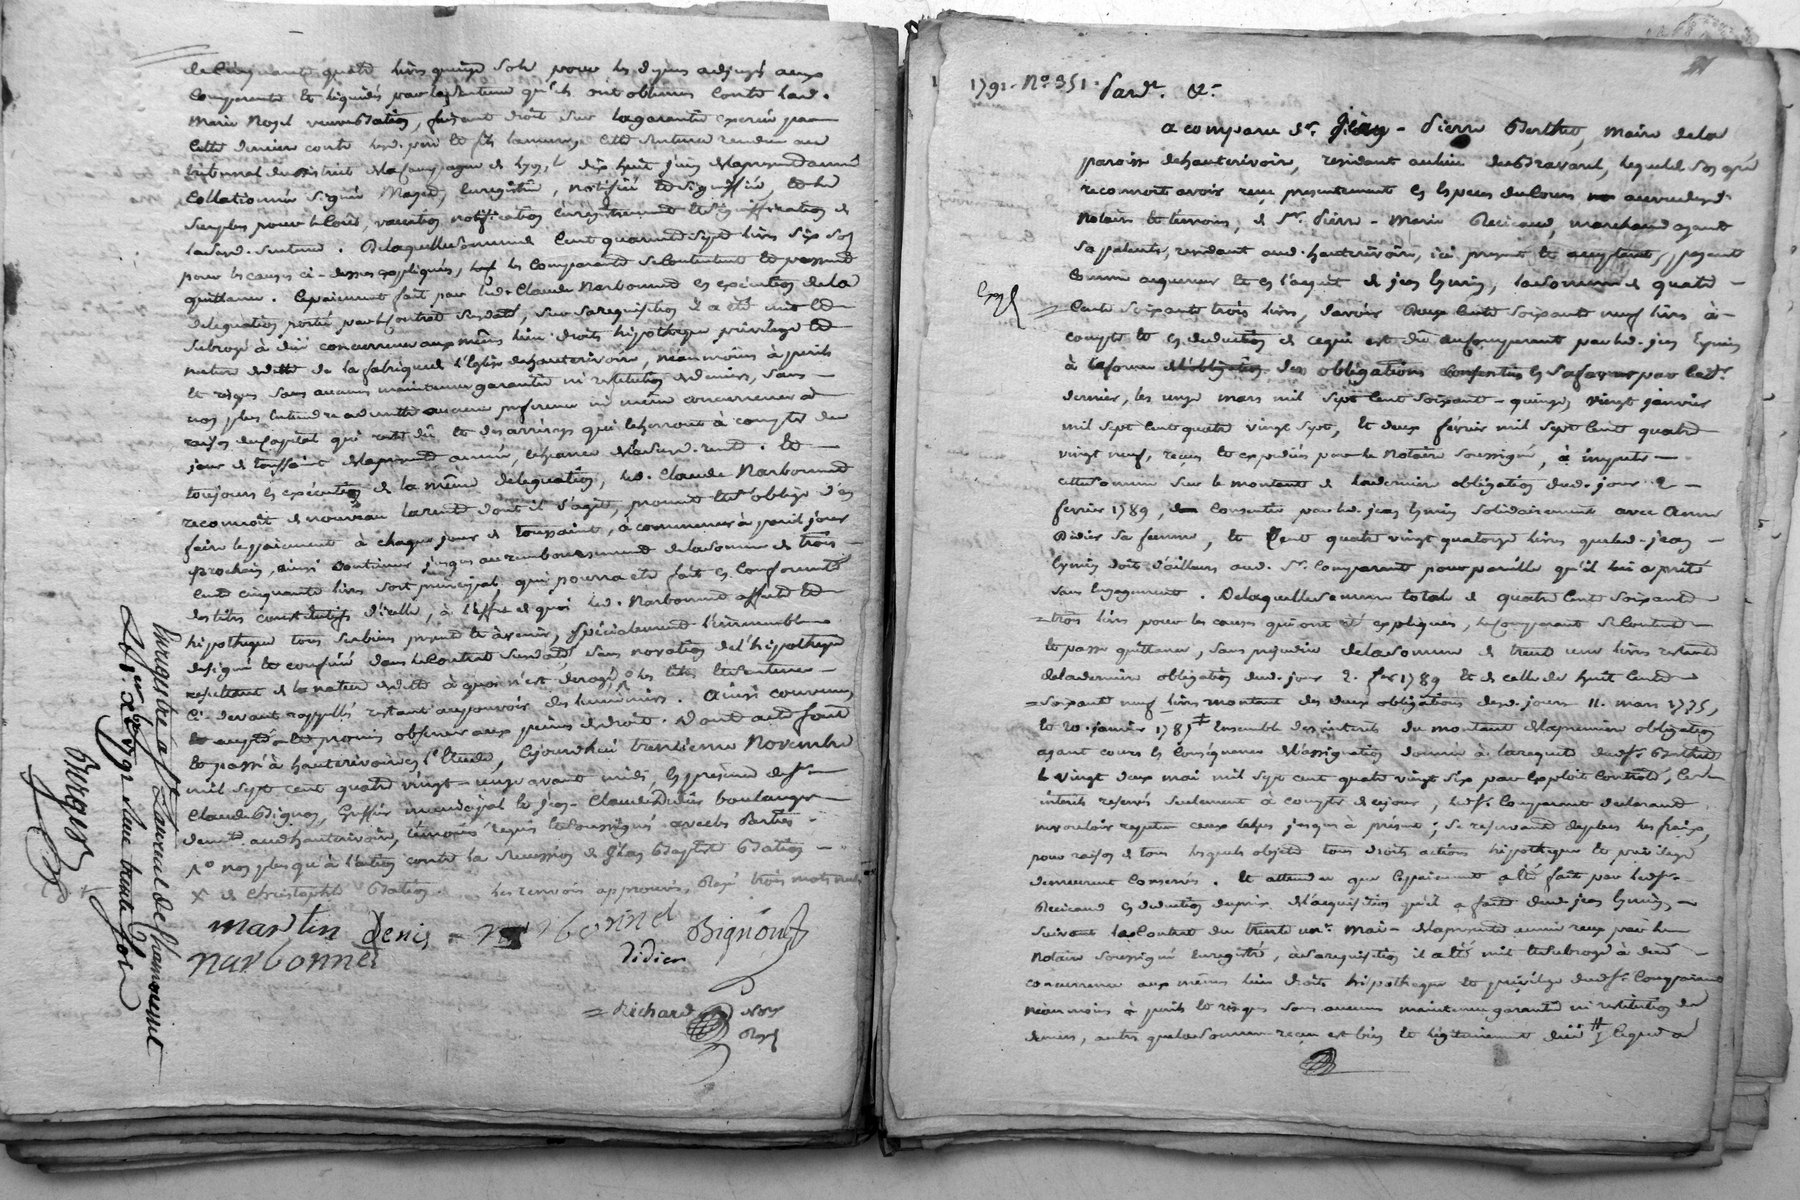 de cinquante quatre livres quinze sols pour les depens adjugés aux
comparants et liquidés par la sentence qu'ils ont obtenue contre lad.
Marie Noyel veuve Bation, faisant droit sur la garantie exercée par
cette derniere contre led. pere et fils lad. sentence rendue au
tribunal du district de la campagne de Lyon, le dix huit juin de la presente année
Collationnée signé enregistrée, notifiée et signifiée, et le
surplus pour le cout, vacation notification enregistrement et signification de
lad. sentence. De laquelle somme cent quarante sept livres six sols
pour les causes ci-dessus expliquées, les comparants se contentent et passent
quittance. Le paiement fait par led. Claude Narbonnet en execution de la
delegation portée, par le contrat susdaté, sur sa requisition il a été mis et
subrogé à dû concurrence aux mêmes lieu droits hipotheque privilege et
nature de dette de la fabrique de l'Eglise de hauterivoire, neanmoins à perils
et risques sans aucune maintenue garantie ni restitution de deniers, sans
non plus entendre admettre aucune preference ni même concurrence à
raison du capital qui reste dû et des arrérages qui echerront à compter du
jour de toussaint de la presente année, echeance de la susd. rente. Et
toujours en execution de la même delegation, led. Claude Narbonnet
reconnoit de nouveau la rente dont il s'agit, promet et s'oblige d'en
faire le paiement à chaque jour de toussaint, à commencer à pareil jour
prochain, ainsi continuer jusques au remboursement de la somme de trois
cent cinquante livres sort principal, qui pourra etre fait en conformité
des titres constitutifs d'icelle, à l'effet de quoi led. Narbonnet affecte et
hipotheque tous ses biens present et à venir, specialement l'immeuble
designé et confiné dans le contrat susdaté, sans novation de l'hipotheque
resultant de la nature de dette à quoi n'est derogé, les titres et sentence
ci-devant rappellés restant au pouvoir des Ainsi convenu
accepté et promis observer aux peines de droit. Dont acte fait
et passé à hauterivoire en l'Etude, cejourd'hui trentieme Novembre
mil sept cent quatre vingt-onze avant midi, en presence de sr.
Claude Bignon, Greffier municipal et Jean-Claude Didier boulanger
demt. aud. hauterivoire, temoins requis et soussignés avec les parties.
1o non plus qu'à l'action contre la succession de Jean Baptiste Bation
X de Christophle Bation. les renvois approuvés, Rayé trois mots nuls
martin Denis Narbonnet Bignon
narbonnet Didier
Richard Nore
Royal
Enregistré a St Laurent de Chamousset
le 1. xbre 1791 Reçu trente sols
Burger
1791. No 351. Pard. &c.
a comparu sr. Jean-Pierre Berthet, maire de la
paroisse de hauterivoire, residant au lieu du Bravard, lequel de son gré
reconnoit avoir reçu presentement en especes du cours au vu desd.
notaire et temoins, de sr. Pierre-Marie Recicaud, marchand ayant
sa patente, residant aud. hauterivoire, ici present et acceptant, payant
comme acquereur et en l'acquit de jean Eymin, la somme de quatre
cents soixante trois livres, savoir Deux cents soixante neuf livres à
compte et en deduction de ce qui est dû au comparant par led. jean Eymin
à la forme des obligations consenties en sa faveur par ce
dernier, les onze mars mil sept cent soixante-quinze, vingt janvier
mil sept cent quatre vingt sept, et deux fevrier mil sept cent quatre
vingt neuf, reçues et expediées par le notaire soussigné, à imputer
cette somme sur le montant de la derniere obligation dud. jour 2
fevrier 1789, consentie par led. jean Eymin solidairement avec Anne
Didier sa femme, et Cent quatre vingt quatorze livres que led. jean
Eymin doit d'ailleurs aud. sr. Comparant pour pareille qu'il lui a prété
sans engagement. De laquelle somme totale de quatre cent soixante
trois livres pour les causes qui ont été expliquées, le comparant se contente
et passe quittance, sans prejudice de la somme de trente une livres restante
de la derniere obligation dud. jour 2. fer 1789 et de celle de huit cents
soixante neuf livres montant des deux obligations desd. jours 11. mars 1775,
et 20. janvier 1787 Ensemble des interets du montant de la premiere obligation
ayant cours en consequence de l'assignation donnée à la requete dud. sr. Berthet
le vingt deux mai mil sept cent quatre vingt six par exploit controlé, ces
interets reservés seulement à compter de ce jour, led. sr. Comparant declarant
ne vouloir repeter ceux echus jusqu'à present; se reservant de plus les frais,
pour raison de tous lesquels objets tous droits actions hipotheque et privilege
demeurent conservés. Et attendu que le paiement a été fait par led. sr.
Recicaud en deduction du prix de l'acquisition qu'il a faite dud. jean Eymin,
suivant le contrat du trente un mai de la presente année reçu par le
notaire soussigné enregistré, à sa requisition il a été mis et subrogé à due
concurrence aux mêmes lieu droits hipotheque et privilege dud. sr. Comparant
neanmoins à perils et risques sans aucune maintenue garantie ni restitution de
deniers, autres que la somme reçue est bien et legitimement due lequel a